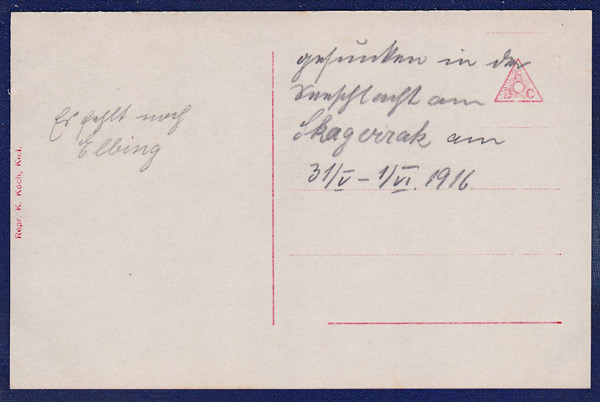 Er fehlt noch
Elbing
gesunken in der
Seeschlacht am
Skagerrak am
31/V – 1/VI. 1916
Repr. K. Koch, Kiel.